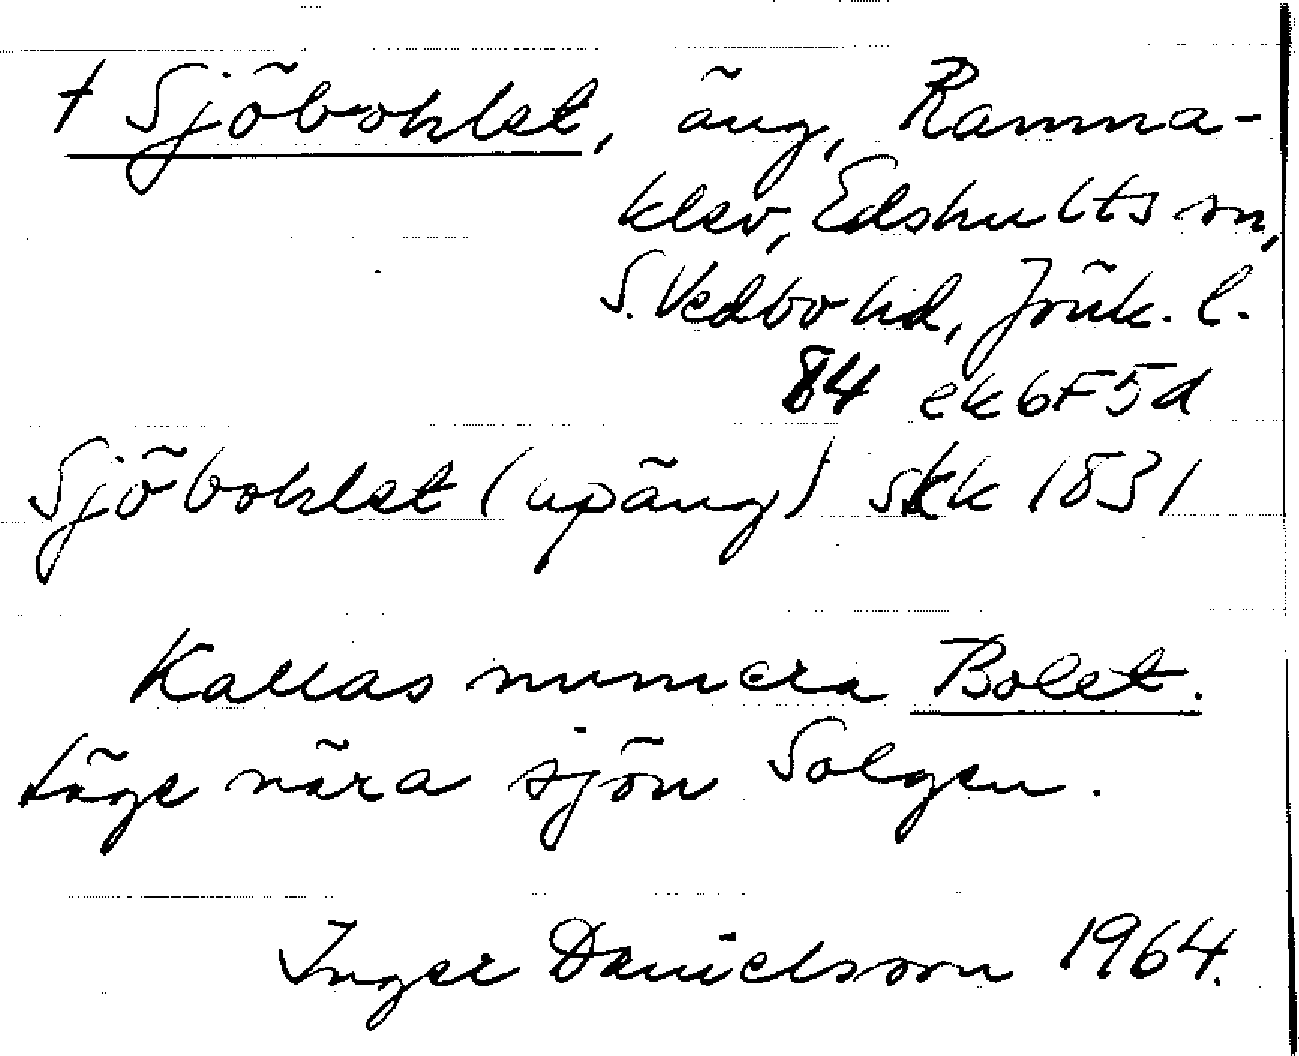 † Sjöbohlet, äng, Ramna-
klev, Edshults sn,
S. Vedbo hd, Jönk. l.
84 ek 6F5d
Sjöbohlet (upäng) skk 1831
Kallas numera Bolet.
Läge nära sjön Solgen.
Inger Danielsson 1964.